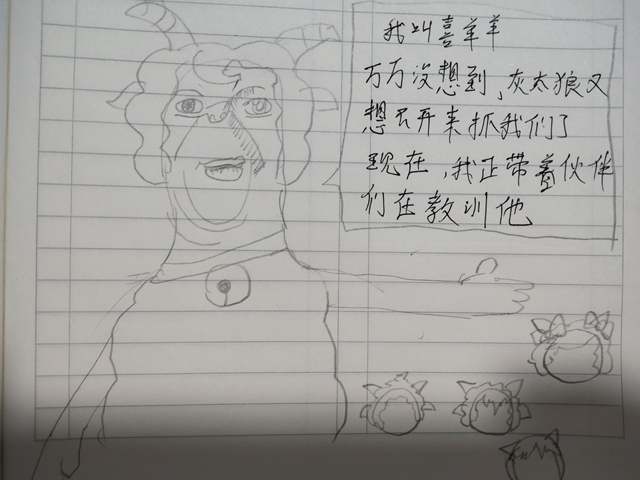 我叫喜羊羊
万万没想到,灰太狼又
想不开来抓我们了
现在,我正带着伙伴
们在教训他